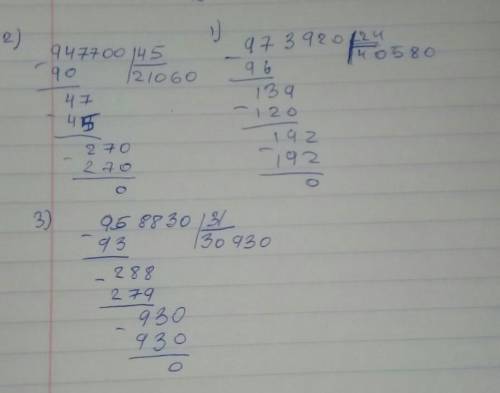 1)
- 973920 |24
96 |40580
139
- 120
192
- 192
0
2)
- 947700 |45
90 |21060
47
- 45
- 270
270
0
3)
- 958830 |31
93 |30930
- 288
279
- 930
930
0